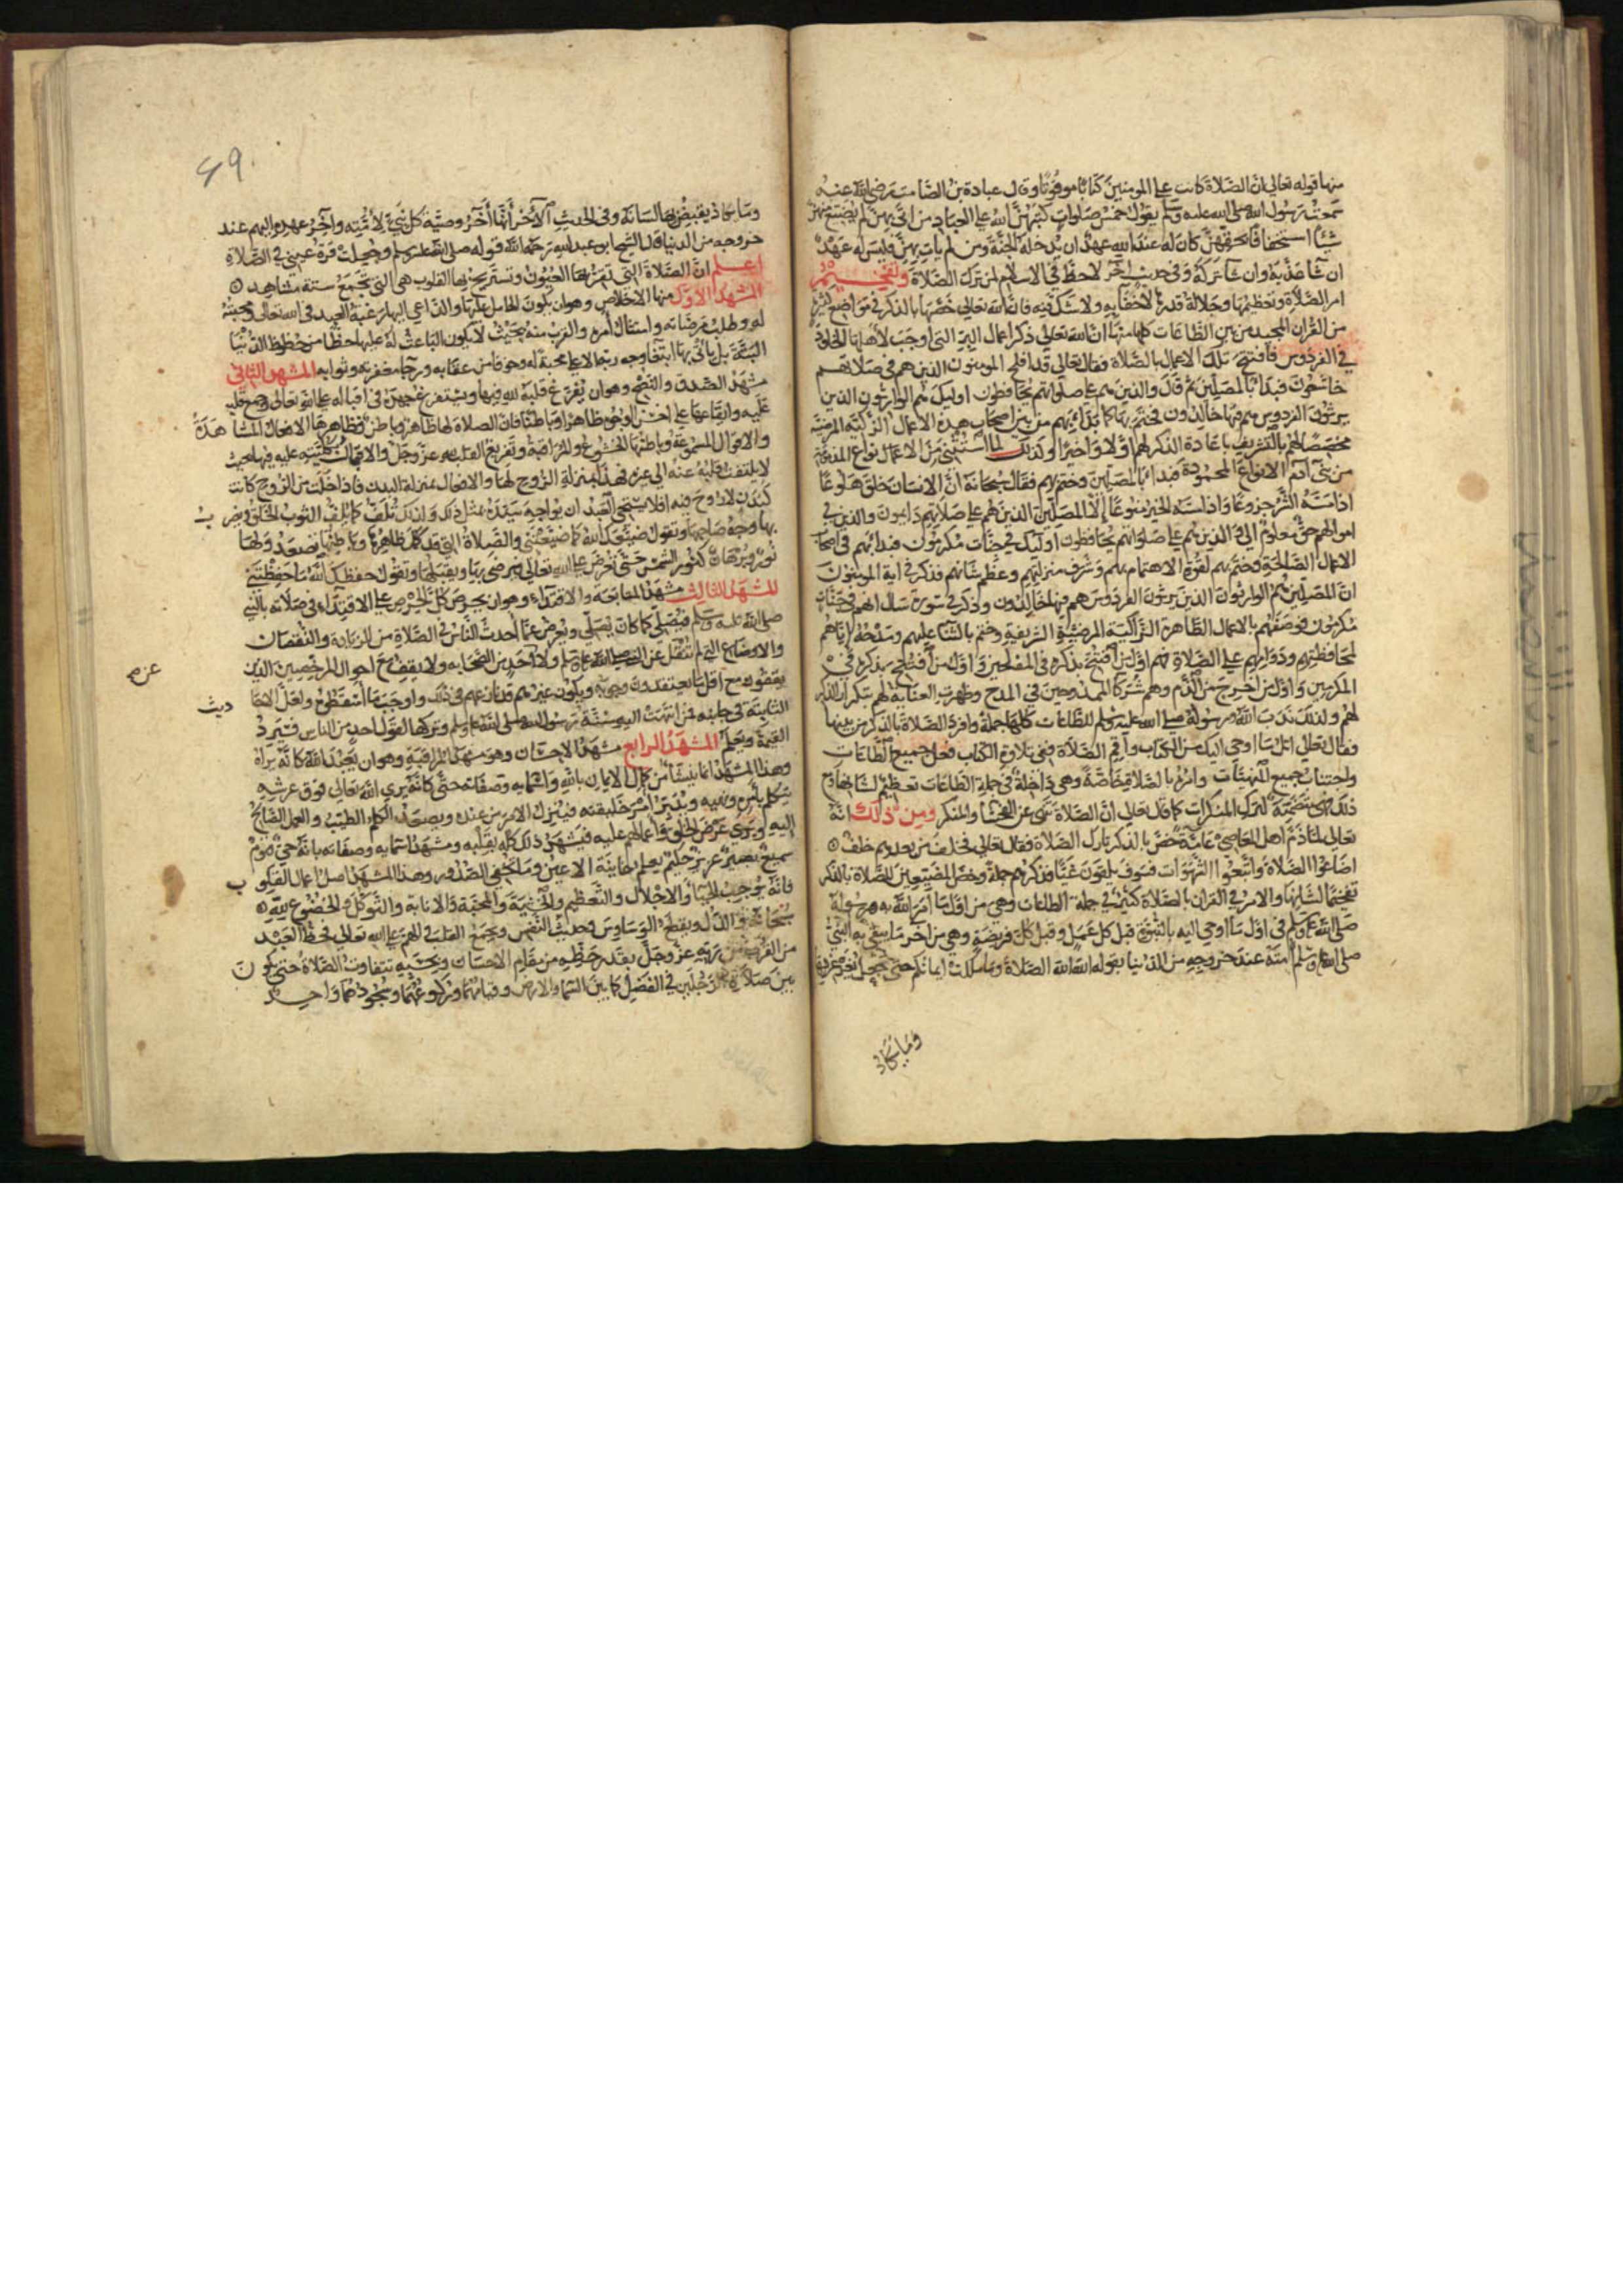 منها قوله تعالى ان الصلاة كانت على المومنين كتابا موقوتا وقال عبادة بن الصامت رضي الله عنه
سمعت رسول الله صلى الله عليه وسلم يقول خمس صلوات كتبهن الله على العباد من اتى بهن لم يضيع منهن
شيئا استخفافا بحقهن كان له عند الله عهد ان يدخله الجنة ومن لم يات بهن فليس له عهد
ان شا عذبه وان شا تركه وفي حديث اخر لا حظ في الاسلام لمن ترك الصلاة وتفخيم
امر الصلاة وتعظيمها وجلالة قدرها لا خفا به ولا شك فيه فان الله تعالى خصها بالذكر في مواضع كثيرة
من القران المجيد من بين الطاعات كلها منها ان الله تعالى ذكر اعمال البر التي اوجب لاهلها الخلود
في الفردوس فافتتح تلك الاعمال بالصلاة فقال تعالى قد افلح المومنون الذين هم في صلاتهم
خاشعون فبدا بالمصلين ثم قال والذين هم على صلواتهم يحافظون اوليك هم الوارثون الذين
يرثون الفردوس هم فيها خالدون فختم بها كما بدا بهم من بين اصحاب هذه الاعمال الزكية المرضية
مخصصا لهم بالتشريف باعادة الذكر لهم اولا واخرا ولذلك لما استثنى من الاعمال انواع المذمة
من بني ادم الانواع المحمودة فبدا بالمصلين وختم بهم فقال سبحانه ان الانسان خلق هلوعا
اذا مسه الشر جزوعا واذا مسه الخير منوعا الا المصلين الذين هم على صلاتهم دايمون والذين في
اموالهم حق معلوم الى والذين هم على صلواتهم يحافظون اوليك في جنات مكرمون فبدا بهم في اصحاب
الاعمال الصالحة وختم بهم لقوة الاهتمام بهم وشرف منزلتهم وعظم شانهم فذكر في اية المومنون
ان المصلين هم الوارثون الذين يرثون الفردوس هم فيها خالدون وذكر في سورة سال انهم في جنات
مكرمون فوصفهم بالاعمال الطاهرة الزاكية المرضية الشريفة وختم بالثنا عليهم ومدحه اياهم
لمحافظتهم ودوامهم على الصلاة فهم اول من افتتح بذكره في المفلحين واول من افتتح بذكره في
المكرمين واول من اخرج من الذم وهم شركا الممدوحين في المدح وظهرت العناية لهم بتكرار الذكر
لهم ولذلك ندب الله رسوله صلى الله عليه وسلم للطاعات كلها جملة وافرد الصلاة بالذكر من بينها
فقال تعالى اتل ما اوحي اليك من الكتاب واقم الصلاة ففي تلاوة الكتاب فعل جميع الطاعات
واجتناب جميع المنهيات وامره بالصلاة خاصة وهي داخلة في جملة الطاعات تعظيم لشانها
ذلك متضمنة لترك المنكرات كما قال تعالى ان الصلاة تنهى عن الفحشا والمنكر ومن ذلك انه
تعالى لما ذم اهل المعاصي عامة خص بالذكر تارك الصلاة فقال تعالى فخلف من بعدهم خلف
اضاعوا الصلاة واتبعوا الشهوات فسوف يلقون غيا فذكرهم جملة وخص المضيعين للصلاة بالذكر
تفخيما لشانها والامر في القران بالصلاة كثير في جملة الطاعات وهي من اول ما امر الله به رسوله
صلى الله عليه وسلم في اول ما اوحي اليه بالنبوة قبل كل عمل وقبل كل فريضة وهي من اخر ما وصى به النبي
صلى الله عليه وسلم امته عند خروجه من الدنيا بقوله الله الله الصلاة وما ملكت ايمانكم حتى جعل يغرغر
وما يكاد
٤٩
وما يكاد يقبض بها لسانه وفي الحديث الاخر انها اخر وصية كل نبي لامته واخر عهده اليهم عند
خروجه من الدنيا قال الشيخ ابو عبد الله رحمه الله قوله صلى الله عليه وسلم وجعلت قرة عيني في الصلاة
اعلم ان الصلاة التي تقر بها العيون وتستريح بها القلوب هي التي تجمع ستة مشاهد
المشهد الاول منها الاخلاص وهو ان يكون الحامل عليها والداعي اليها رغبة العبد في الله تعالى ومحبته
له وطلب مرضاته وامتثال امره والقرب منه بحيث لا يكون الباعث له عليها حظا من حظوظ الدنيا
البتة بل ياتي بها ابتغا وجه ربه الاعلى محبة له وخوفا من عقابه ورجا مغفرته وثوابه المشهد الثاني
مشهد الصدق والنصح وهو ان يفرغ قلبه لله فيها ويستفرغ جهده في اقباله على الله تعالى وجمع قلبه
عليه وايقاعها على احسن الوجوه ظاهرا وباطنا فان الصلاة لها ظاهر وباطن فظاهرها الافعال المشاهدة
والاقوال المسموعة وباطنها الخشوع والمراقبة وتفريغ القلب لله عز وجل والاقبال بكليته عليه فيها بحيث
لا يلتفت قلبه عنه الى غيره فهذا بمنزلة الروح لها والافعال بمنزلة البدن فاذا خلت من الروح كانت
كبدن لا روح فيه افلا يستحي العبد ان يواجه سيده بمثل ذلك ولذلك تلف كما يلف الثوب الخلق ويضرب
بها وجه صاحبها وتقول ضيعك الله كما ضيعتني والصلاة التي قد كمل ظاهرها وباطنها تصعد ولها
نور وبرهان كنور الشمس حتى تعرض على الله تعالى فيرضى بها ويقبلها وتقول حفظك الله كما حفظتني
المشهد الثالث مشهد المتابعة والاقتداء وهو ان يحرص كل الحرص على الاقتداء في صلاته بالنبي
صلى الله عليه وسلم فيصلي كما كان يصلي ويعرض عما احدث الناس في الصلاة من الزيادة والنقصان
والاوضاع التي لم تنقل عن النبي صلى الله عليه وسلم ولا احد من الصحابه ولا يقف مع احوال المرخصين الذين
يقفون مع اقل ما يعتقدون وجوبه ويكون غيرهم قد نازعهم في ذلك واوجب ما اسقطوه ولعل الاحاديث
الثابتة في جانبه فمن انتهت اليه سنة رسول الله صلى الله عليه وسلم وتركها لقول احد من الناس فيرد
القيمة ويعلم المشهد الرابع مشهد الاحسان وهو مشهد المراقبة وهو ان يعبد الله كانه يراه
وهذا المشهد انما ينشأ من كمال الايمان بالله واسمايه وصفاته حتى كانه يرى الله تعالى فوق عرشه
يتكلم بامره ونهيه ويدبر امر خليقته فينزل الامر من عنده ويصعد الكلم الطيب والعمل الصالح
اليه ويرى عرض الخلق واعمالهم عليه فيشهد ذلك كله بقلبه ومشهد اسمايه وصفاته بانه حي قيوم
سميع بصير عزيز حكيم يعلم خاينة الاعين وما تخفي الصدور وهذا المشهد اصل اعمال القلوب
فانه يوجب الحيا والاجلال والتعظيم والخشية والمحبة والانابة والتوكل والخضوع لله
سبحانه والذل ويقطع الوساوس وحديث النفس ويجمع القلب والهم على الله تعالى فحظ العبد
من القرب من ربه عز وجل بقدر حظه من مقام الاحسان وبحسبه تتفاوت الصلاة حتى يكون
بين صلاة الرجلين في الفضل كما بين السما والارض وقيامهما وركوعهما وسجودهما واحد